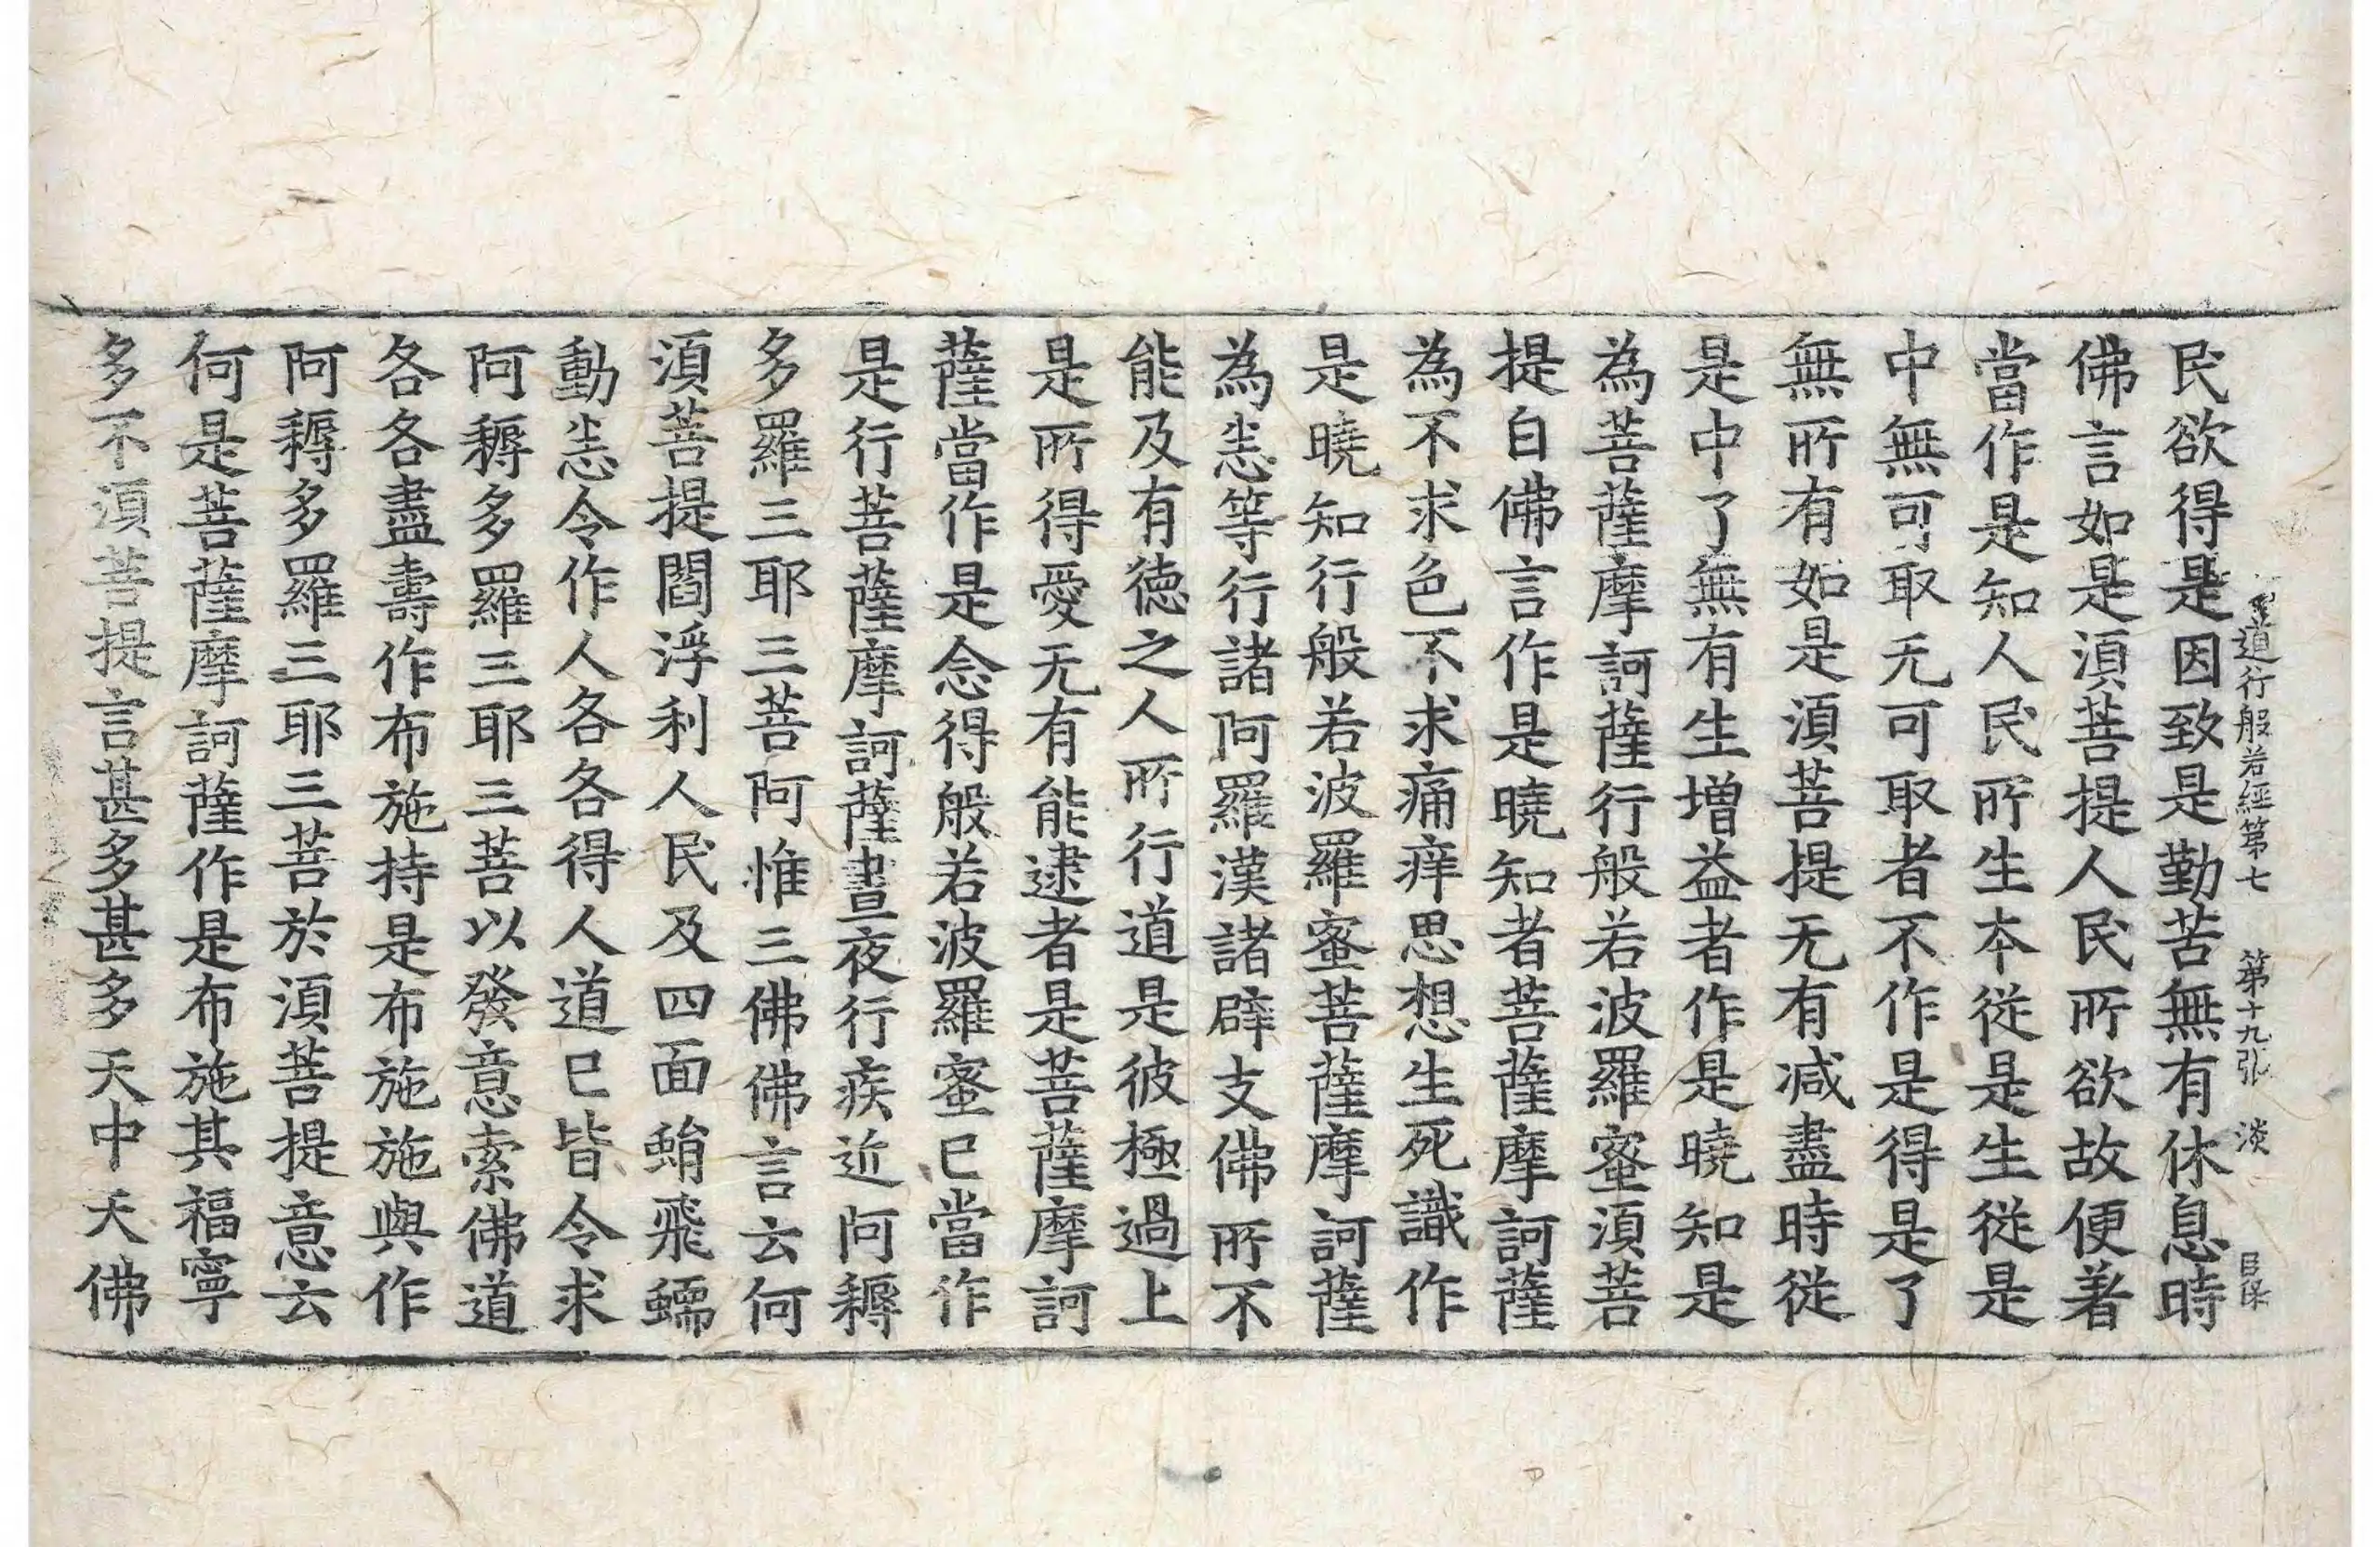 道行般若經第七 第十九張 淡
民欲得是因致是勤苦無有休息時
佛言如是須菩提人民所欲故便著
當作是知人民所生本從是生從是
中無可取无可取者不作是得是了
無所有如是須菩提无有减盡時從
是中了無有生增益者作是曉知是
為菩薩摩訶薩行般若波羅蜜須菩
提白佛言作是曉知者菩薩摩訶薩
為不求色不求痛痒思想生死識作
是曉知行般若波羅蜜菩薩摩訶薩
為悉等行諸阿羅漢諸辟支佛所不
能及有德之人所行道是彼極過上
是所得愛无有能逮者是菩薩摩訶
薩當作是念得般若波羅蜜已當作
是行菩薩摩訶薩晝夜行疾近阿耨
多羅三耶三菩阿惟三佛佛言云何
須菩提閻浮利人民及四面蜎飛蠕
動悉令作人各各得人道已皆令求
阿耨多羅三耶三菩以發意索佛道
各各盡壽作布施持是布施施與作
阿耨多羅三耶三菩於須菩提意云
何是菩薩摩訶薩作是布施其福寧
多不須菩提言甚多甚多天中天佛